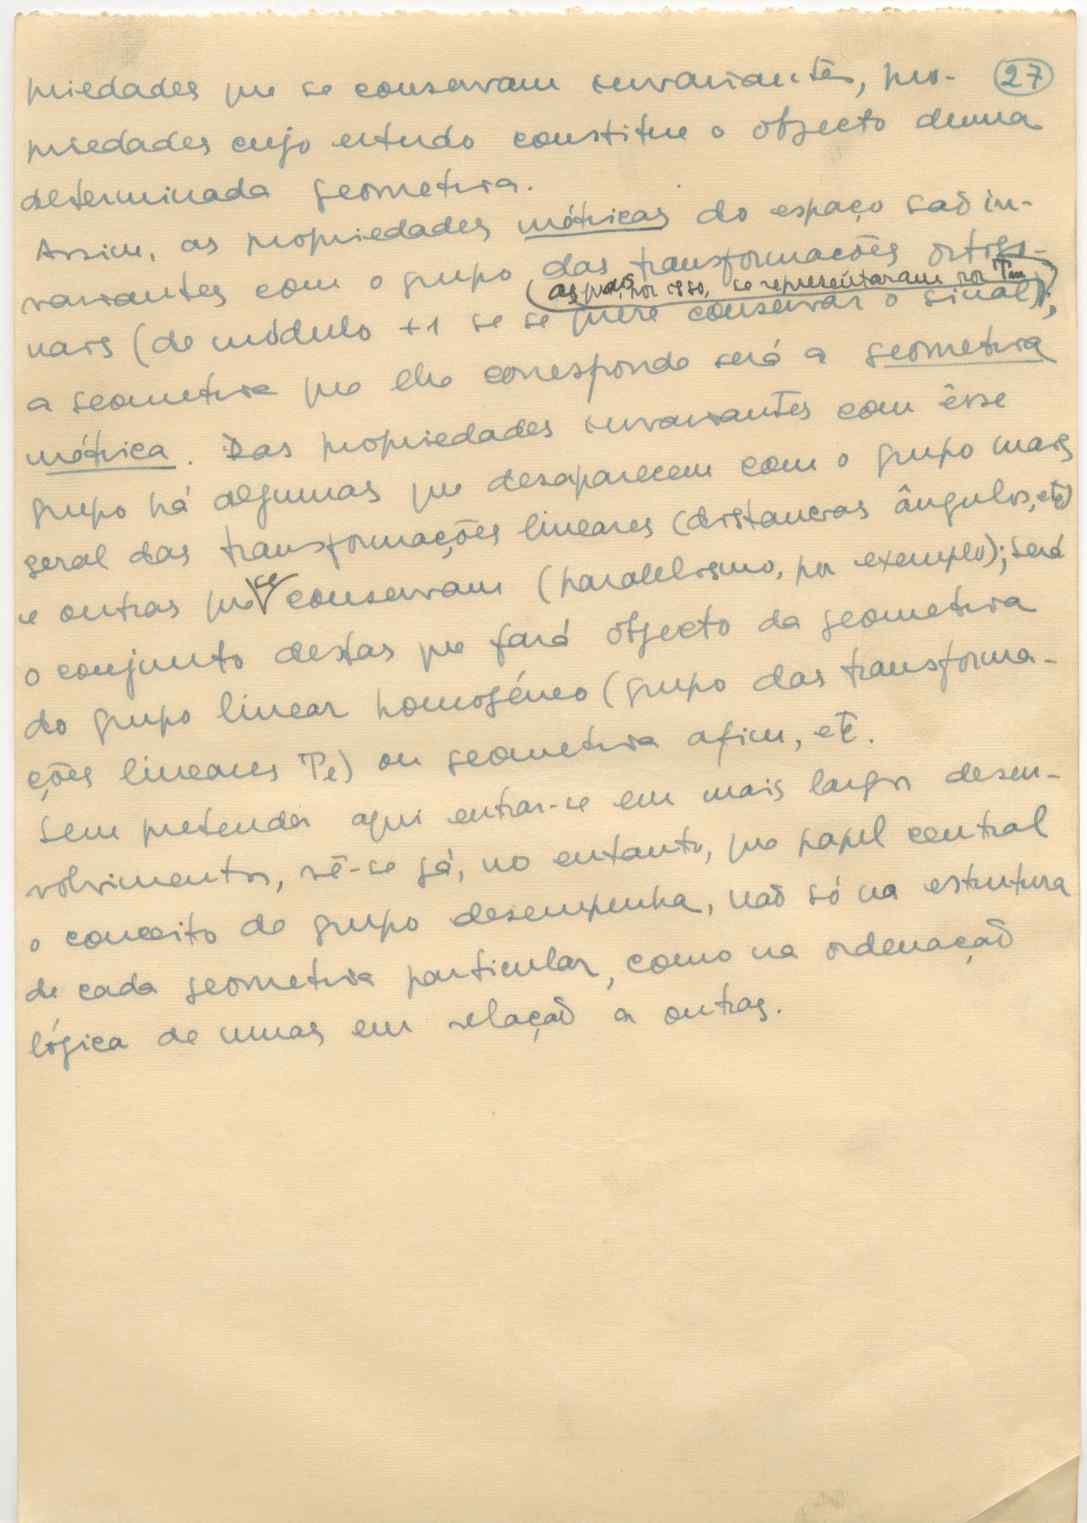 priedades que se conservam invariantes, pro- 27
priedades cujo estudo constitue o objecto duma
determinada geometria.
Assim, as propriedades métricas do espaço são in-
variantes com o grupo das transformações ortogo-
(as quais, por isso, se representaram por Tm)
nais (de módulo +1 se se quere conservar o sinal);
a geometria que lhe corresponde será a geometria
métrica. Das propriedades invariantes com êsse
grupo há algumas que desaparecem com o grupo mais
geral das transformações lineares (distancias ângulos, etc)
e outras que se conservam (paralelismo, por exemplo); será
o conjunto destas que fará objecto da geometria
do grupo linear homogéneo (grupo das transforma-
ções lineares Te) ou geometria afim, etc.
Sem pretender aqui entrar-se em mais largos desen-
volvimentos, vê-se já, no entanto, que papel central
o conceito de grupo desempenha, não só na estrutura
de cada geometria particular, como na ordenação
lógica de umas em relação a outras.